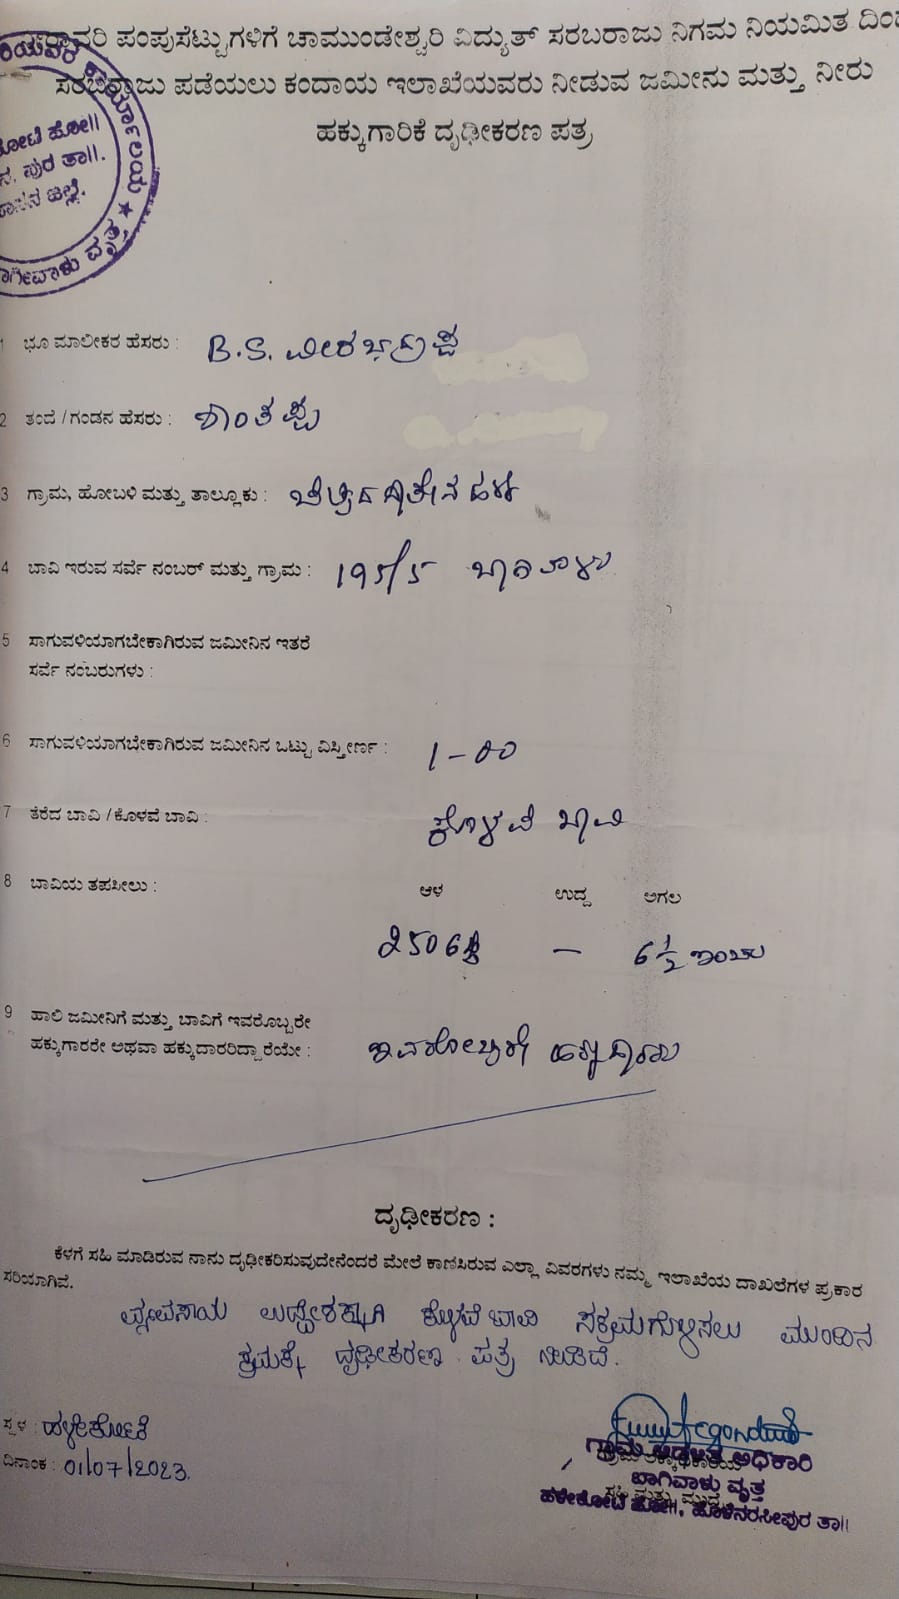 ನೀರಾವರಿ ಪಂಪುಸೆಟ್ಟುಗಳಿಗೆ ಚಾಮುಂಡೇಶ್ವರಿ ವಿದ್ಯುತ್ ಸರಬರಾಜು ನಿಗಮ ನಿಯಮಿತ ದಿಂದ
ಸರಬರಾಜು ಪಡೆಯಲು ಕಂದಾಯ ಇಲಾಖೆಯವರು ನೀಡುವ ಜಮೀನು ಮತ್ತು ನೀರು
ಹಕ್ಕುಗಾರಿಕೆ ದೃಢೀಕರಣ ಪತ್ರ
ಕಾರ್ಯಾಲಯ ★
ಕೋಟೆ ಹೋ||
ನ. ಪುರ ತಾ||.
ಹಾಸನ ಜಿಲ್ಲೆ.
ಬಾಗೀವಾಳು ವೃತ್ತ
1 ಭೂ ಮಾಲೀಕರ ಹೆಸರು : B.S. ವೀರಭದ್ರಪ್ಪ
2 ತಂದೆ / ಗಂಡನ ಹೆಸರು : ಶಾಂತಪ್ಪ
3 ಗ್ರಾಮ, ಹೋಬಳಿ ಮತ್ತು ತಾಲ್ಲೂಕು :
4 ಬಾವಿ ಇರುವ ಸರ್ವೆ ನಂಬರ್ ಮತ್ತು ಗ್ರಾಮ : 195/5 ಬಾಗಿವಾಳು
5 ಸಾಗುವಳಿಯಾಗಬೇಕಾಗಿರುವ ಜಮೀನಿನ ಇತರೆ
ಸರ್ವೆ ನಂಬರುಗಳು :
6 ಸಾಗುವಳಿಯಾಗಬೇಕಾಗಿರುವ ಜಮೀನಿನ ಒಟ್ಟು ವಿಸ್ತೀರ್ಣ : 1-00
7 ತೆರೆದ ಬಾವಿ / ಕೊಳವೆ ಬಾವಿ : ಕೊಳವೆ ಬಾವಿ
8 ಬಾವಿಯ ತಪಸೀಲು : ಆಳ ಉದ್ದ ಅಗಲ
250 — 6 1/2 ಇಂಚು
9 ಹಾಲಿ ಜಮೀನಿಗೆ ಮತ್ತು ಬಾವಿಗೆ ಇವರೊಬ್ಬರೇ
ಹಕ್ಕುಗಾರರೇ ಅಥವಾ ಹಕ್ಕುದಾರರಿದ್ದಾರೆಯೇ : ಇವರೊಬ್ಬರೇ ಹಕ್ಕುದಾರರು
ದೃಢೀಕರಣ :
ಕೆಳಗೆ ಸಹಿ ಮಾಡಿರುವ ನಾನು ದೃಢೀಕರಿಸುವುದೇನೆಂದರೆ ಮೇಲೆ ಕಾಣಿಸಿರುವ ಎಲ್ಲಾ ವಿವರಗಳು ನಮ್ಮ ಇಲಾಖೆಯ ದಾಖಲೆಗಳ ಪ್ರಕಾರ
ಸರಿಯಾಗಿವೆ.
ವ್ಯವಸಾಯ ಉದ್ದೇಶಕ್ಕಾಗಿ ಕೊಳವೆ ಬಾವಿ ಸಕ್ರಮಗೊಳಿಸಲು ಮುಂದಿನ
ಕ್ರಮಕ್ಕೆ ದೃಢೀಕರಣ ಪತ್ರ ನೀಡಿದೆ.
ಸ್ಥಳ : ಹಳೇಕೋಟೆ
ದಿನಾಂಕ : 01/07/2023.
ಗ್ರಾಮ ಆಡಳಿತ ಅಧಿಕಾರಿ
ಬಾಗಿವಾಳು ವೃತ್ತ
ಸಹಿ ಮತ್ತು ಮುದ್ರೆ
ಹಳೇಕೋಟೆ ಹೋ||, ಹೊಳೆನರಸೀಪುರ ತಾ||